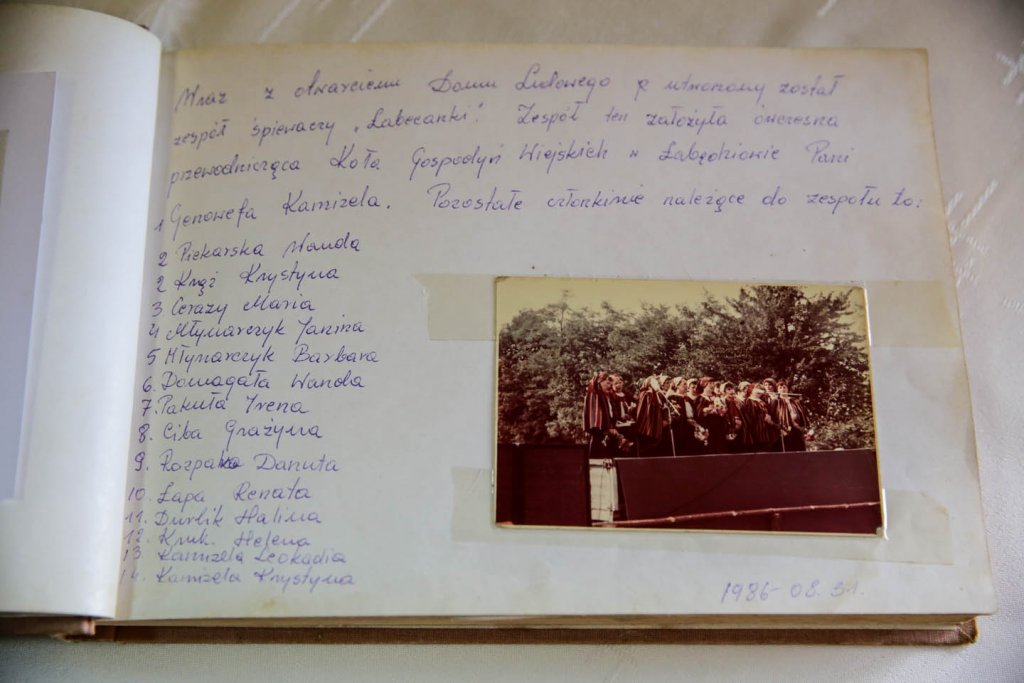 Wraz z otwarciem Domu Ludowego utworzony został
zespół śpiewaczy „Łabecanki". Zespół ten założyła ówczesna
przewodnicząca Koła Gospodyń Wiejskich w Łabędziowie Pani
1 Genowefa Kamizela. Pozostałe członkinie należące do zespołu to:
2 Piekarska Wanda
2 Krąż Krystyna
3 Cerazy Maria
4 Młynarczyk Janina
5 Młynarczyk Barbara
6. Domagała Wanda
7. Pakuła Irena
8. Ciba Grażyna
9. Danuta
10. Łapa Renata
11. Durlik Halina
12. Kruk Helena
13. Kamizela Leokadia
14. Kamizela Krystyna
1986-08.31.